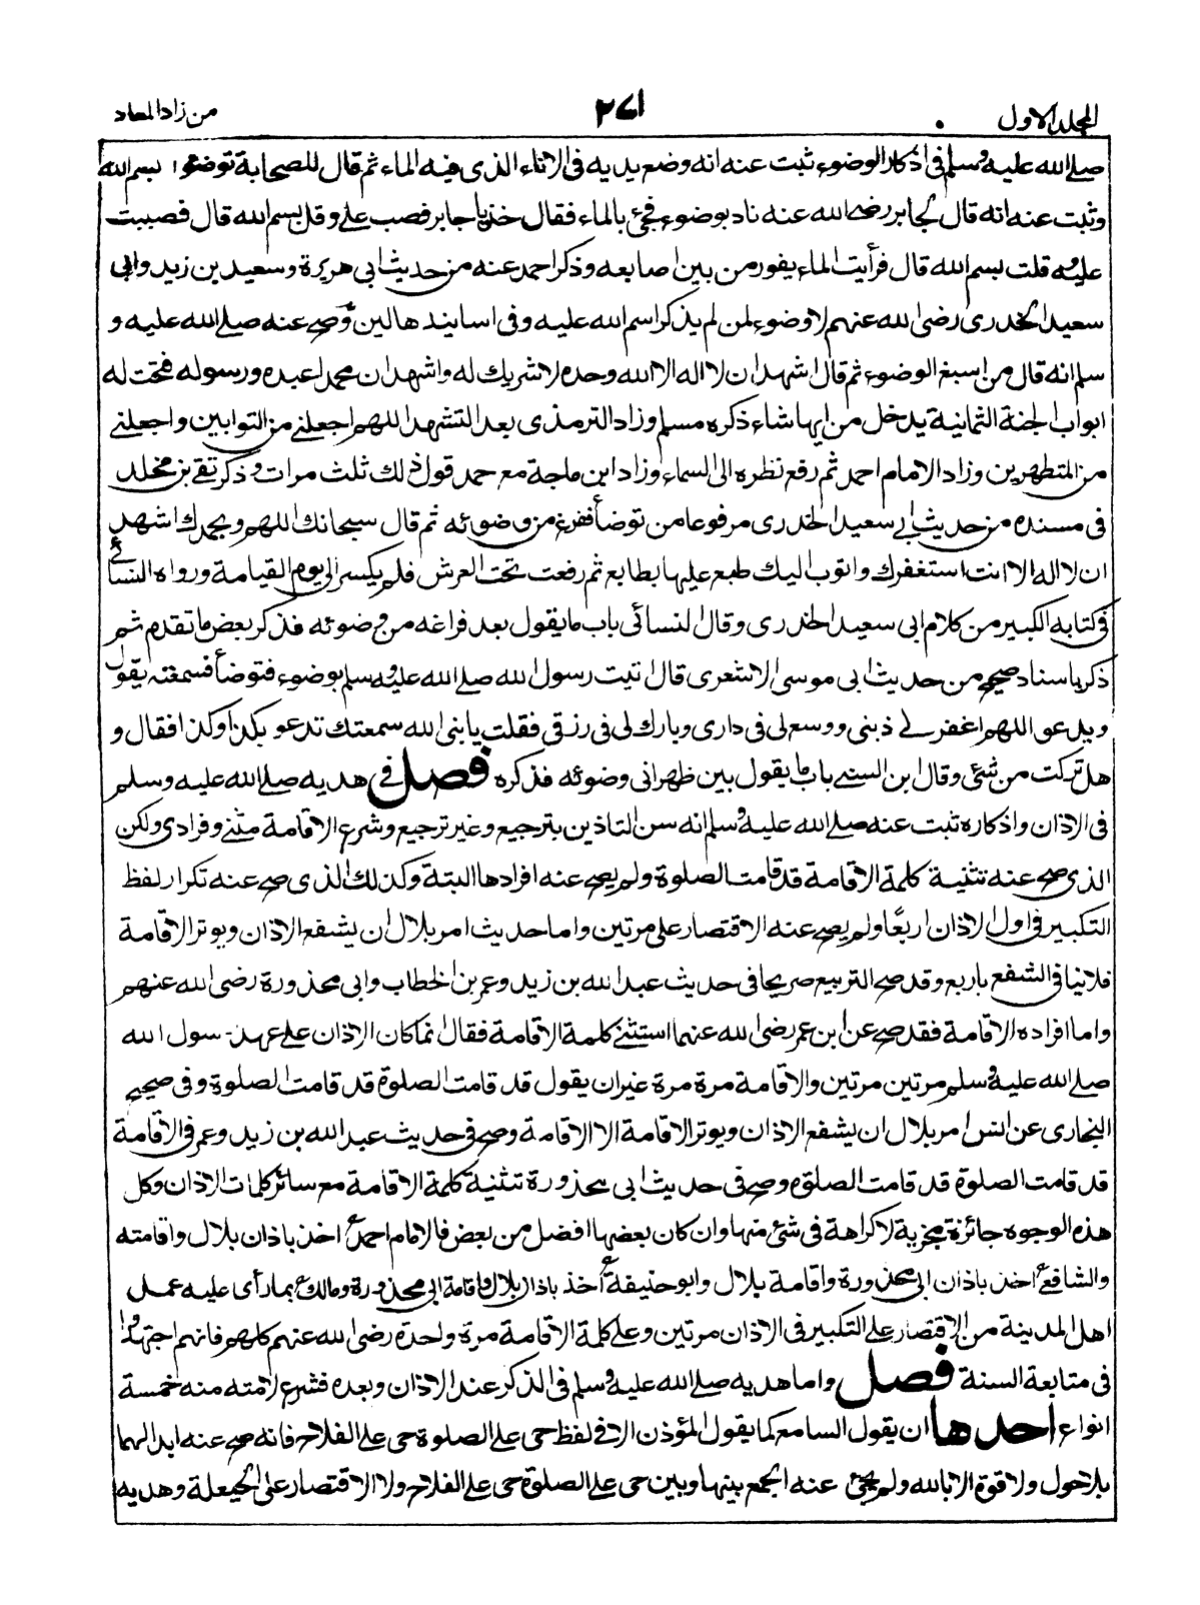 المجلد الاول
٢٧١
من زاد المعاد
صلے الله عليه وسلم فى اذكار الوضوء ثبت عنه انه وضع يديه فى الاناء الذى فيه الماء ثم قال للصحابة توضؤا بسم الله
وثبت عنه انه قال لجابر رضى الله عنه ناد بوضوء فجئ بالماء فقال خذ يا جابر فصب على وقل بسم الله قال فصببت
عليه وقلت بسم الله قال فرأيت الماء يفور من بين اصابعه وذكر احمد عنه من حديث ابى هريرة وسعيد بن زيد وابى
سعيد الخدرى رضى الله عنهم لا وضوء لمن لم يذكر اسم الله عليه وفى اسانيدها لين وصح عنه صلے الله عليه و
سلم انه قال من اسبغ الوضوء ثم قال اشهد ان لا اله الا الله وحده لا شريك له واشهد ان محمدا عبده ورسوله فتحت له
ابواب الجنة الثمانية يدخل من ايها شاء ذكره مسلم وزاد الترمذى بعد التشهد اللهم اجعلنے من التوابين واجعلنے
من المتطهرين وزاد الامام احمد ثم رفع نظره الى السماء وزاد ابن ماجة مع احمد قول ذلك ثلث مرات وذكر تقى بن مخلد
فى مسنده من حديث ابى سعيد الخدرى مرفوعا من توضأ ففرغ من وضوئه ثم قال سبحانك اللهم وبحمدك اشهد
ان لا اله الا انت استغفرك واتوب اليك طبع عليها بطابع ثم رفعت تحت العرش فلم يكسر الى يوم القيامة ورواه النسائى
فى كتابه الكبير من كلام ابى سعيد الخدرى وقال النسائى باب ما يقول بعد فراغه من وضوئه فذكر بعض ما تقدم ثم
ذكر باسناد صحيح من حديث ابى موسى الاشعرى قال اتيت رسول الله صلے الله عليه وسلم بوضوء فتوضأ فسمعته يقول
ويدعو اللهم اغفر لے ذنبى ووسع لى فى دارى وبارك لى فى رزقى فقلت يا نبى الله سمعتك تدعو بكذا وكذا فقال و
هل تركت من شئ وقال ابن السنى باب ما يقول بين ظهرانى وضوئه فذكره فصل فى هديه صلے الله عليه وسلم
فى الاذان واذكاره ثبت عنه صلے الله عليه وسلم انه سن التاذين بترجيع وغير ترجيع وشرع الاقامة مثنے وفرادى ولكن
الذى صح عنه تثنية كلمة الاقامة قد قامت الصلوة ولم يصح عنه افرادها البتة وكذلك الذى صح عنه تكرار لفظ
التكبير فى اول الاذان اربعًا ولم يصح عنه الاقتصار على مرتين واما حديث امر بلال ان يشفع الاذان ويوتر الاقامة
فلا ينافى الشفع باربع وقد صح التربيع صريحا فى حديث عبد الله بن زيد وعمر بن الخطاب وابى محذورة رضى الله عنهم
واما افراده الاقامة فقد صح عن ابن عمر رضى الله عنهما استثنے كلمة الاقامة فقال انما كان الاذان على عهد رسول الله
صلے الله عليه وسلم مرتين مرتين والاقامة مرة مرة غير ان يقول قد قامت الصلوة قد قامت الصلوة وفى صحيح
البخارى عن انس امر بلال ان يشفع الاذان ويوتر الاقامة الا الاقامة وصح فى حديث عبد الله بن زيد وعمر فى الاقامة
قد قامت الصلوة قد قامت الصلوة وصح فى حديث ابى محذورة تثنية كلمة الاقامة مع سائر كلمات الاذان وكل
هذه الوجوه جائزة مجزية لا كراهة فى شئ منها وان كان بعضها افضل من بعض فالامام احمد اخذ باذان بلال واقامته
والشافعى اخذ باذان ابى محذورة واقامة بلال وابو حنيفة اخذ باذان بلال واقامة ابى محذورة ومالك بما رأى عليه عمل
اهل المدينة من الاقتصار على التكبير فى الاذان مرتين وعلى كلمة الاقامة مرة واحدة رضى الله عنهم كلهم فانهم اجتهدوا
فى متابعة السنة فصل واما هديه صلے الله عليه وسلم فى الذكر عند الاذان وبعده فشرع لامته منه خمسة
انواع احدها ان يقول السامع كما يقول المؤذن الا فى لفظ حى على الصلوة حى على الفلاح فانه صح عنه ابدالهما
بلا حول ولا قوة الا بالله ولم يجئ عنه الجمع بينها وبين حى على الصلوة حى على الفلاح ولا الاقتصار على الحيعلة وهديه